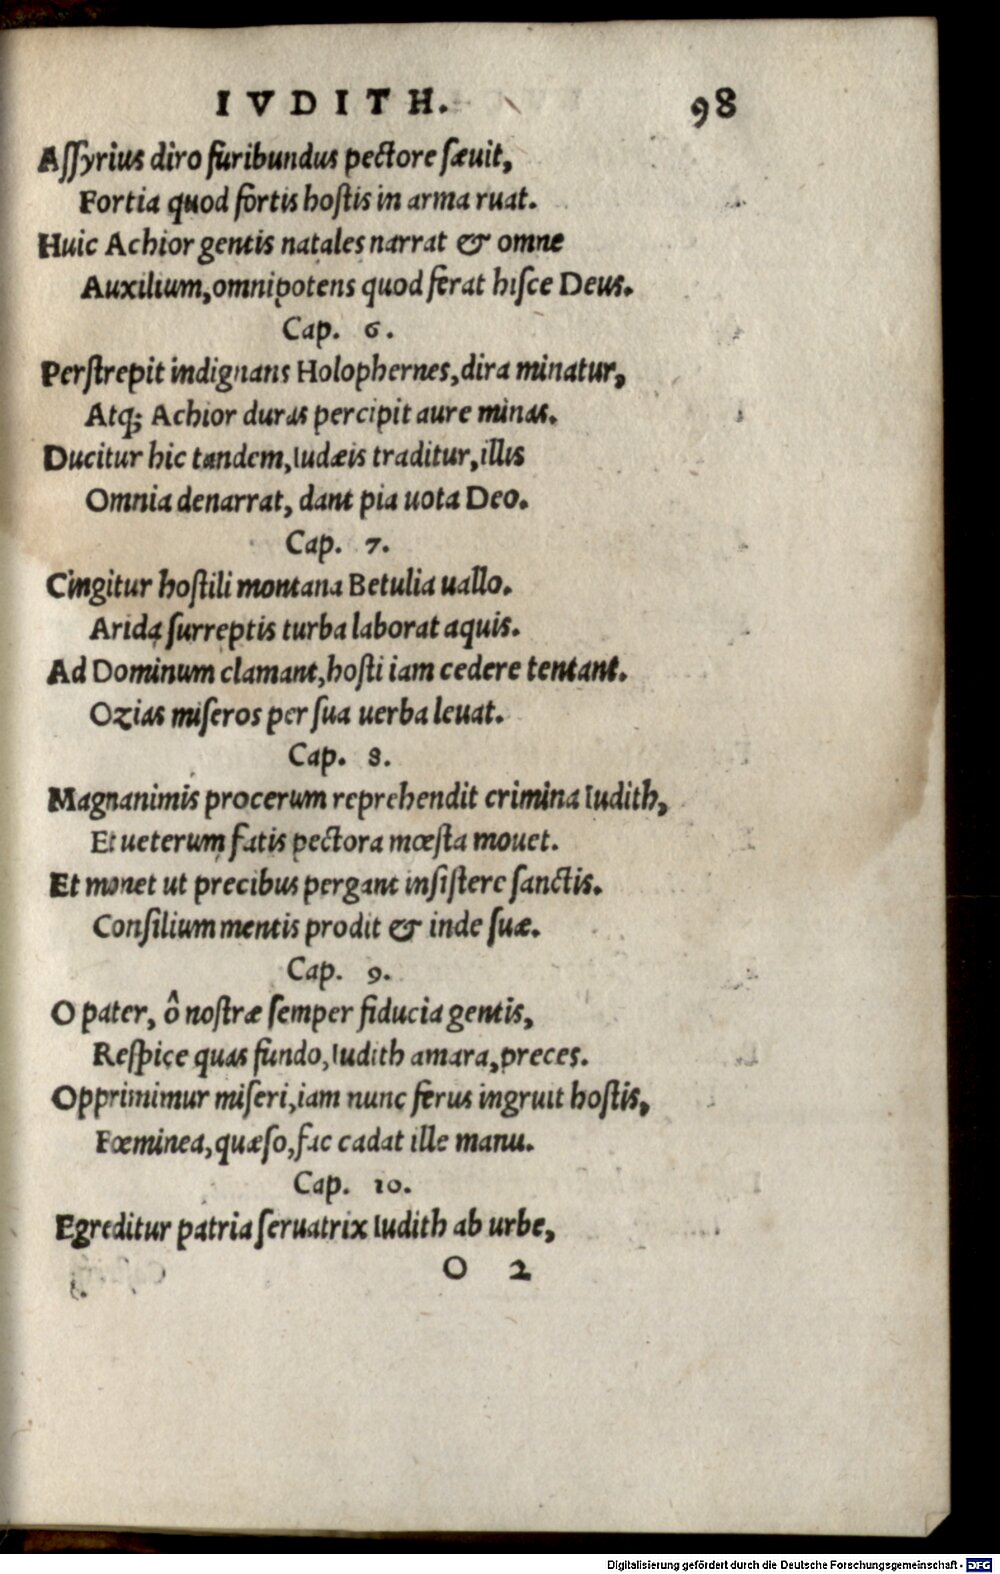 IVDITH. 98
Aſſyrius diro furibundus pectore ſæuit,
Fortia quod fortis hoſtis in arma ruat.
Huic Achior gentis natales narrat & omne
Auxilium, omnipotens quod ferat hiſce Deus.
Cap. 6.
Perſtrepit indignans Holophernes, dira minatur,
Atq; Achior duras percipit aure minas.
Ducitur hic tandem, Iudæis traditur, illis
Omnia denarrat, dant pia uota Deo.
Cap. 7.
Cingitur hoſtili montana Betulia uallo.
Arida ſurreptis turba laborat aquis.
Ad Dominum clamant, hoſti iam cedere tentant.
Ozias miſeros per ſua uerba leuat.
Cap. 8.
Magnanimis procerum reprehendit crimina Iudith,
Et ueterum fatis pectora mœſta mouet.
Et monet ut precibus pergant inſiſtere ſanctis.
Conſilium mentis prodit & inde ſuæ.
Cap. 9.
O pater, ô noſtræ ſemper fiducia gentis,
Reſpice quas fundo, Iudith amara, preces.
Opprimimur miſeri, iam nunc ferus ingruit hoſtis,
Fœminea, quæſo, fac cadat ille manu.
Cap. 10.
Egreditur patria ſeruatrix Iudith ab urbe,
O 2
Digitalisierung gefördert durch die Deutsche Forschungsgemeinschaft - DFG